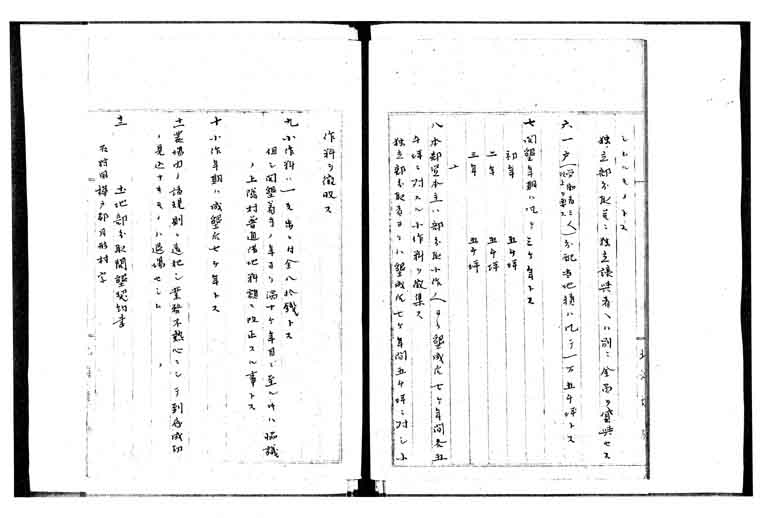 シムルモノトス
独立部分取員ニ独立譲与者ヘハ別ニ金而ヲ貸与セス
六 一戸(労働者三人)分配当地積ハ凡ソ一万五千坪トス
七 開墾年期ハ凡ソ三ケ年トス
初年 五千坪
二年 五千坪
三年 五千坪
八 本部資本主ハ部分取小作人ヨリ墾成后七ケ年間毎五
千坪ニ対スル小作料ヲ徴集ス
独立部分取者ヨリハ墾成后七ケ年間五千坪ニ対シ小
作料ヲ徴収ス
九 小作料ハ一ケ年ニ付金八拾銭トス
但シ開墾着手ノ年ヨリ満十ケ年目ニ至ル時ハ協議
ノ上隣村普通借地料額ニ改正スル事トス
十 小作年期ハ成墾后七ケ年トス
十一 農場内ノ諸規則ニ違犯シ業務不熱心ニシテ到底成功
ノ見込ナキモノハ退場セシム
十二 土地部分取開墾契約書
石狩国樺戸郡月形村字